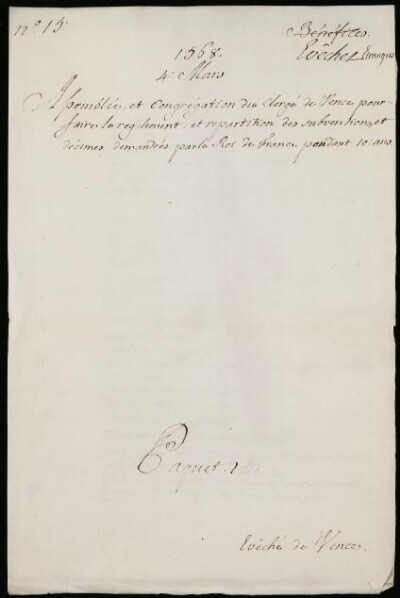 n.° 15.
Bénéfices.
Evêchés Etrangers
1568.
4.e Mars
Assemblée, et Congrégation du Clergé de Vence pour
faire le reglement, et repartition des subventions, et
décimes demandées par le Roi de France pendant 10. ans.
Paquet. 1
Evêché de Vence.